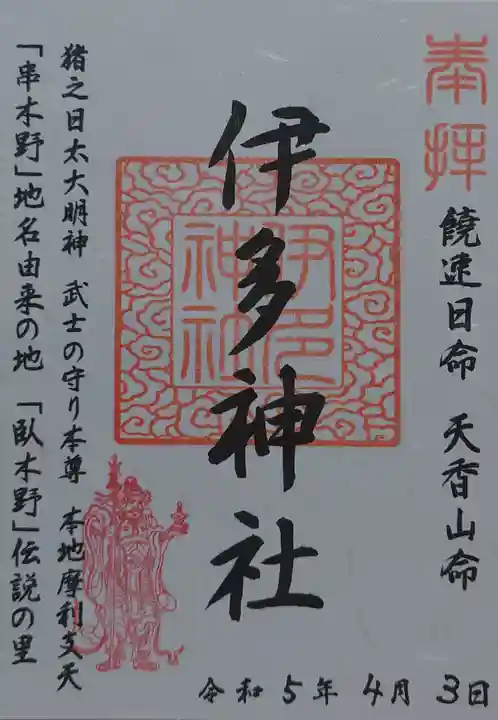 奉拝
饒速日命 天香山命
伊多神社
伊多
神社
猪之日太大明神 武士の守り本尊 本地摩利支天
「串木野」地名由来の地 「臥木野」伝説の里
令和5年4月3日